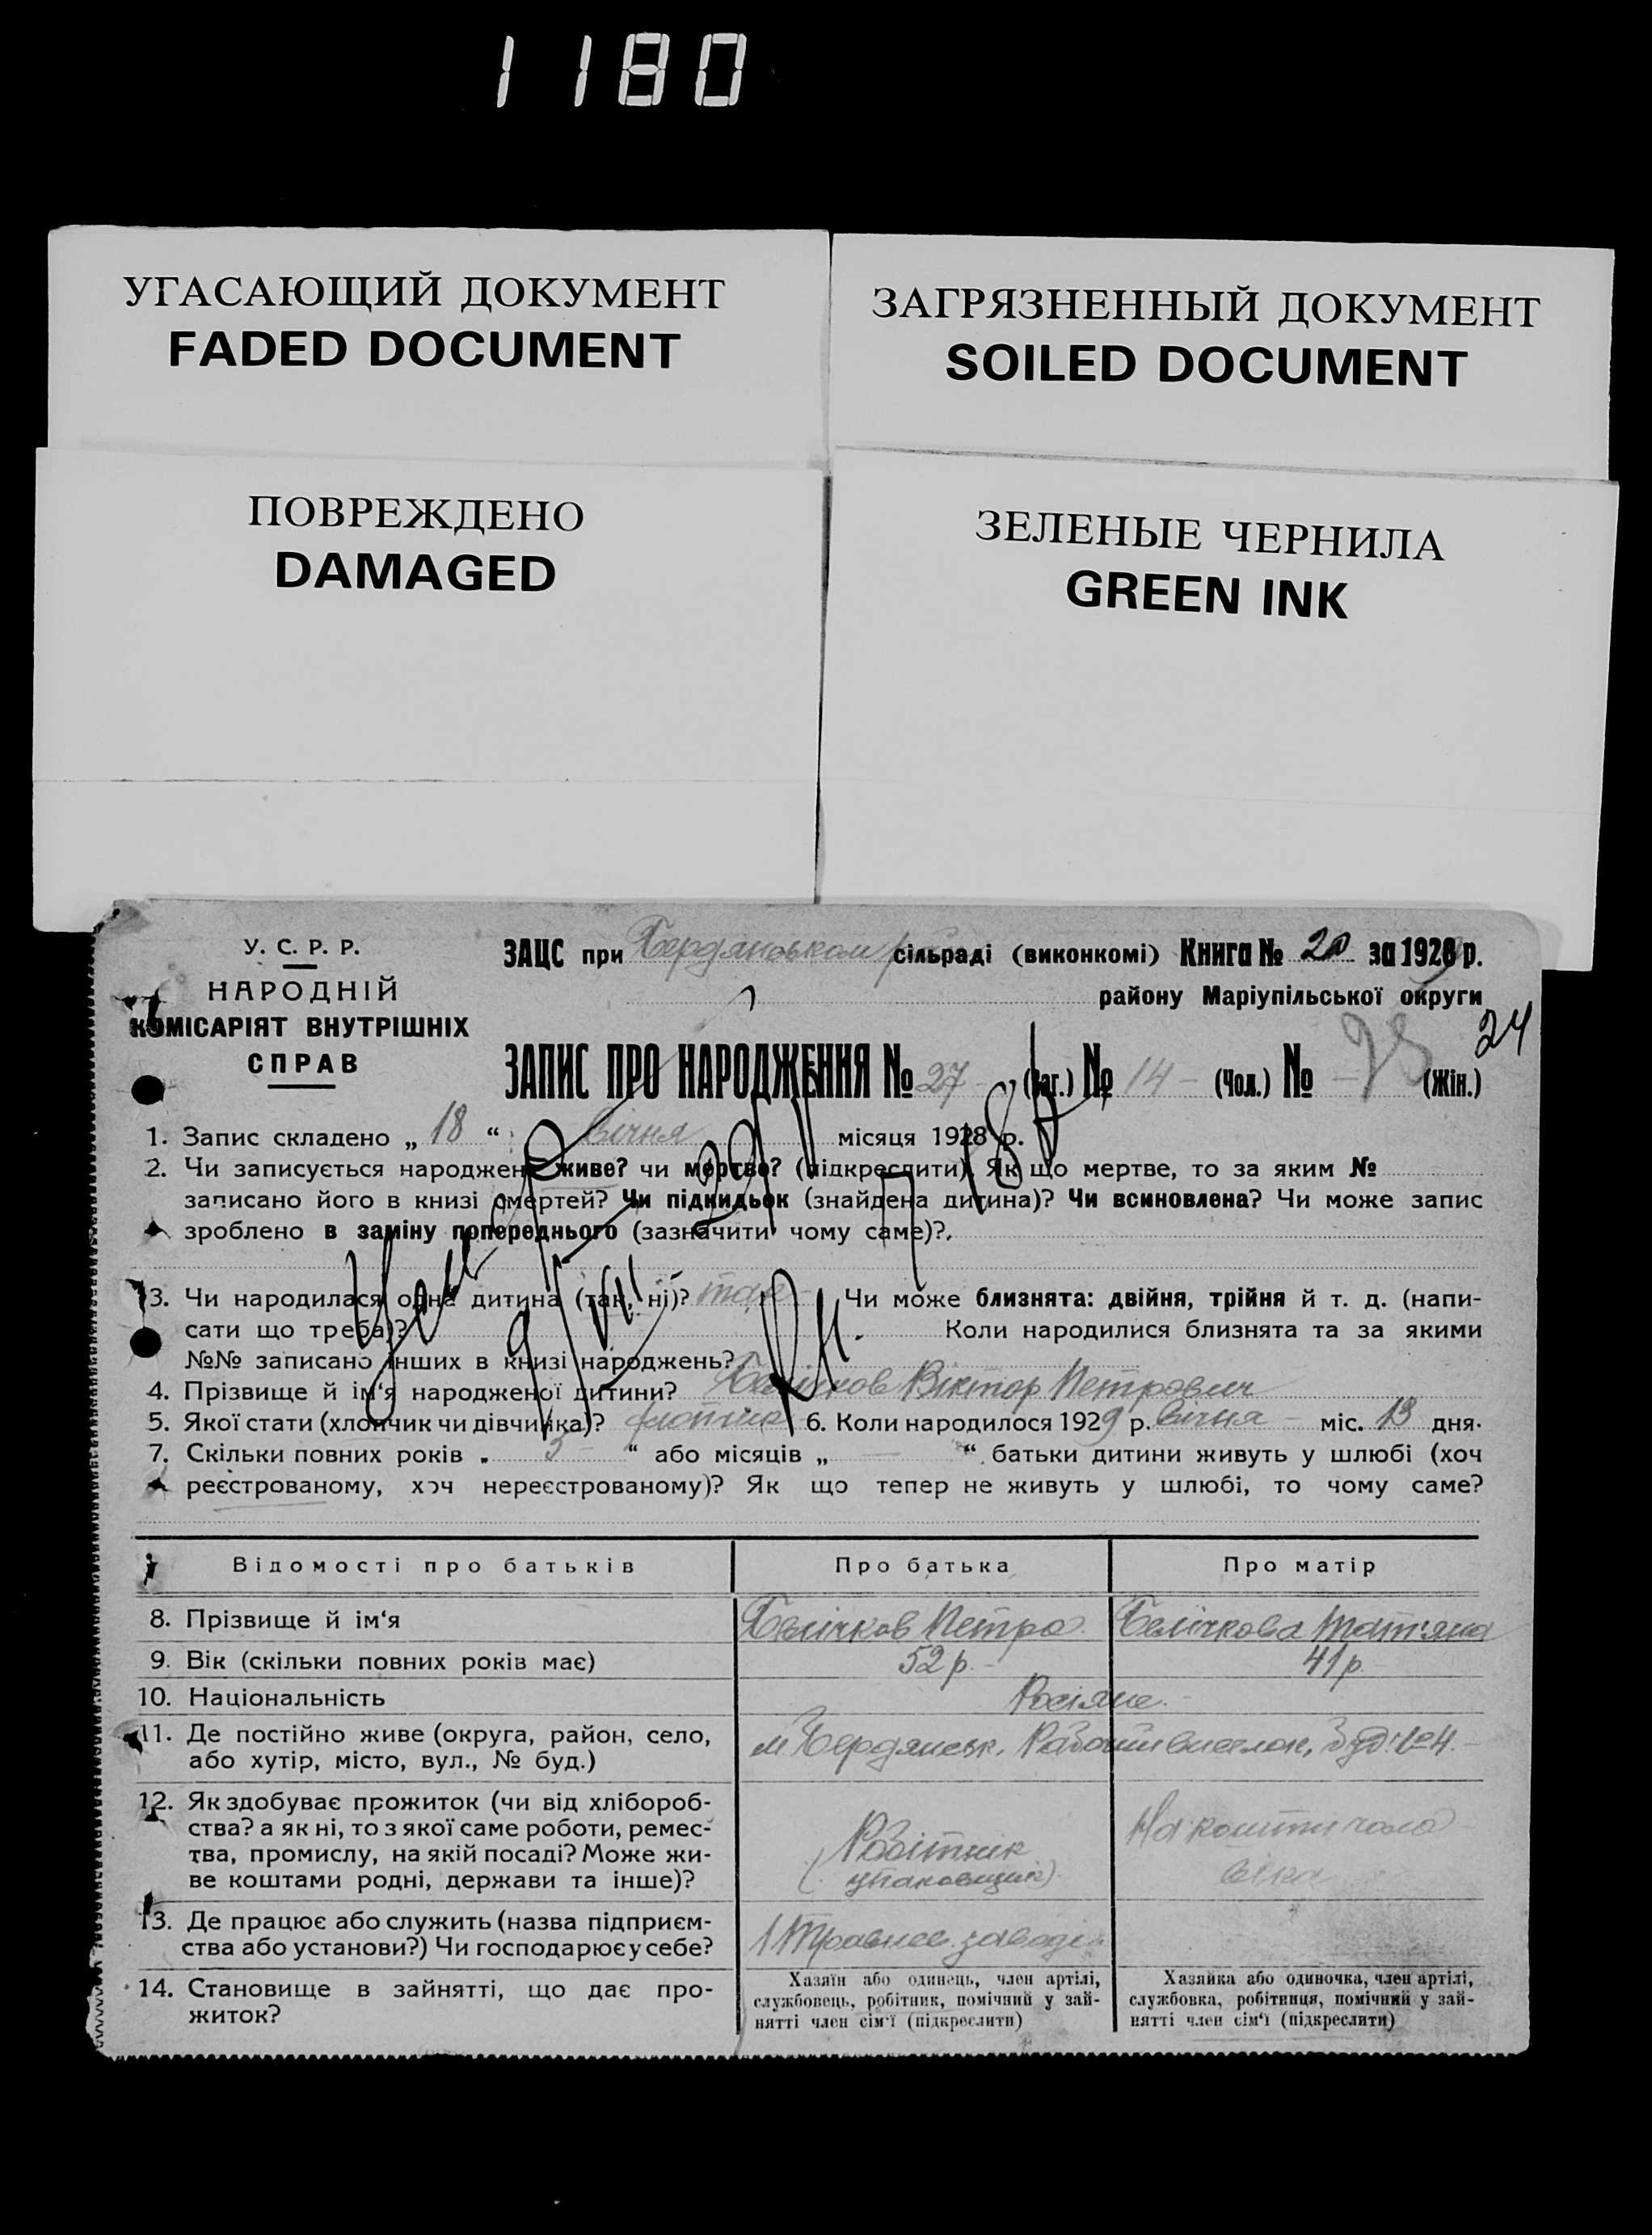 1180
УГАСАЮЩИЙ ДОКУМЕНТ
FADED DOCUMENT
ЗАГРЯЗНЕННЫЙ ДОКУМЕНТ
SOILED DOCUMENT
ПОВРЕЖДЕНО
DAMAGED
ЗЕЛЕНЫЕ ЧЕРНИЛА
GREEN INK
У. С. Р. Р.
НАРОДНІЙ
КОМІСАРІЯТ ВНУТРІШНІХ
СПРАВ
ЗАЦС при Бердянськом сільраді (виконкомі) Книга № 20 за 1929 р.
району Маріупільської округи
24
ЗАПИС ПРО НАРОДЖЕННЯ № 27 (Заг.) № 14 - (Чол.) № (Жін.)
1. Запис складено „ 18 “ січня місяця 1928 р.
2. Чи записується народжене живе? чи мертве? (підкреслити). Як що мертве, то за яким №
записано його в книзі смертей? Чи підкидьок (знайдена дитина)? Чи всиновлена? Чи може запис
зроблено в заміну попереднього (зазначити чому саме)?
3. Чи народилася одна дитина (так, ні)? так Чи може близнята: двійня, трійня й т. д. (напи-
сати що треба)? Коли народилися близнята та за якими
№№ записано інших в книзі народжень?
4. Прізвище й ім‘я народженої дитини? Белічков Віктор Петрович
5. Якої стати (хлопчик чи дівчинка)? 6. Коли народилося 1929 р. січня - міс. 13 дня.
7. Скільки повних років „ “ або місяців „ — “ батьки дитини живуть у шлюбі (хоч
реєстрованому, хоч нереєстрованому)? Як що тепер не живуть у шлюбі, то чому саме?
Відомості про батьків Про батька Про матір
8. Прізвище й ім‘я Белічков Петро Белічкова Тат'яна
9. Вік (скільки повних років має) 52 р. 41 р.
10. Національність Росіяне
11. Де постійно живе (округа, район, село,
або хутір, місто, вул., № буд.)
м Бердянськ, Робочи виселок, Буд. № 4.
12. Як здобуває прожиток (чи від хлібороб-
ства? а як ні, то з якої саме роботи, ремес-
тва, промислу, на якій посаді? Може жи-
ве коштами родні, держави та інше)?
Робітник
(упаковщик)
На кошти чоло
віка
13. Де працює або служить (назва підприєм-
ства або установи?) Чи господарює у себе?
1 Травнев. заводі
14. Становище в зайнятті, що дає про-
житок?
Хазяїн або одинець, член артілі,
службовець, робітник, помічний у зай-
нятті член сім‘ї (підкреслити)
Хазяйка або одиночка, член артілі,
службовка, робітниця, помічний у зай-
нятті член сім‘ї (підкреслити)